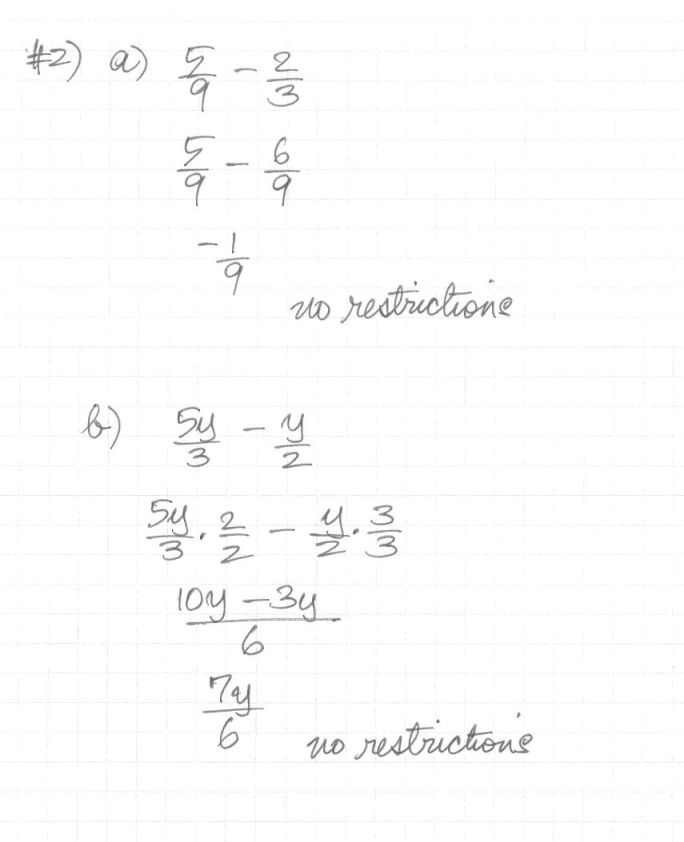 #2) a) 5/9 - 2/3
5/9 - 6/9
-1/9
no restrictions
b) 5y/3 - y/2
5y/3 · 2/2 - y/2 · 3/3
10y - 3y/6
7y/6
no restrictions